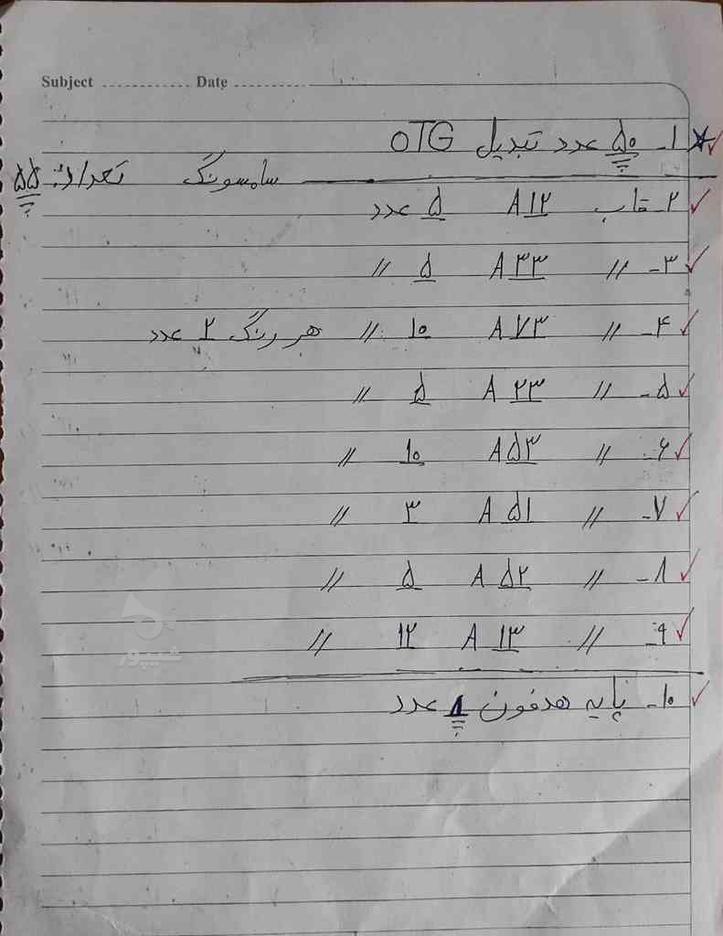 Subject ........... Date ...........
۱- ۵۰ عدد تبدیل OTG
سامسونگ تعداد: ۵۵
۲- قاب A۱۲ ۵ عدد
۳- // A۳۳ ۵ //
۴- // A۷۳ ۱۰ // هر رنگ ۲ عدد
۵- // A۲۳ ۵ //
۶- // A۵۳ ۱۰ //
۷- // A۵۱ ۳ //
۸- // A۵۲ ۵ //
۹- // A۱۳ ۱۲ //
۱۰- پایه هدفون ۸ عدد
شیپور